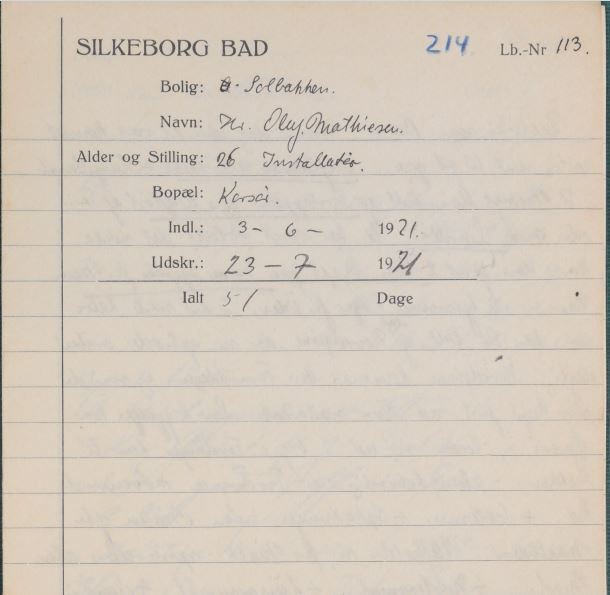 SILKEBORG BAD 214 Lb.-Nr 113.
Bolig: Solbakken.
Navn: Hr. Oluf Mathiesen.
Alder og Stilling: 26 Installatør.
Bopæl: Korsør.
Indl.: 3 - 6 - 1921.
Udskr.: 23 - 7 1921
Ialt 51 Dage